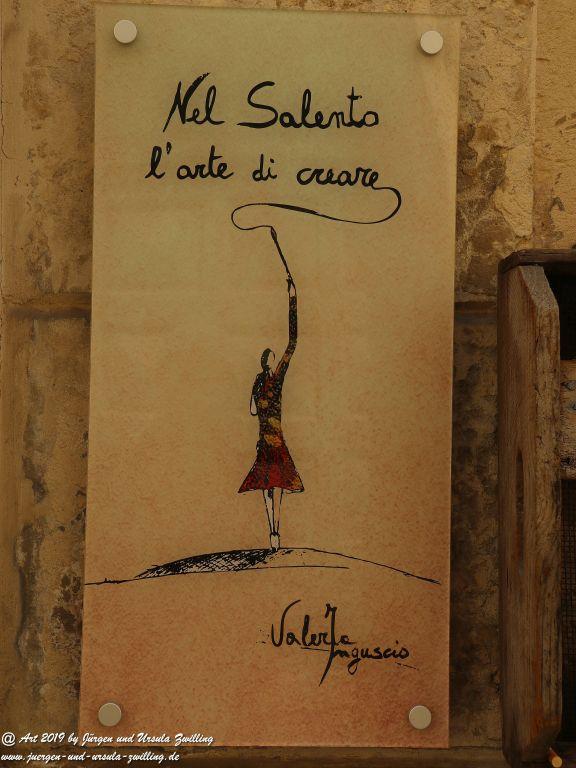 Nel Salento
l'arte di creare
Valeria
Inguscio
@ Art 2019 by Jürgen und Ursula Zwilling
www.juergen-und-ursula-zwilling.de